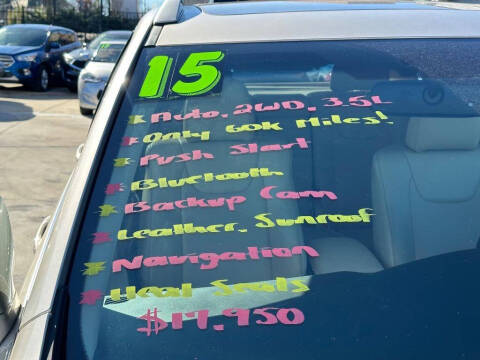 15
*Auto, 2WD, 3.5L
*Only 60K Miles!
*Push Start
*Bluetooth
*Backup Cam
*Leather, Sunroof
*Navigation
*Heat Seats
$17,950